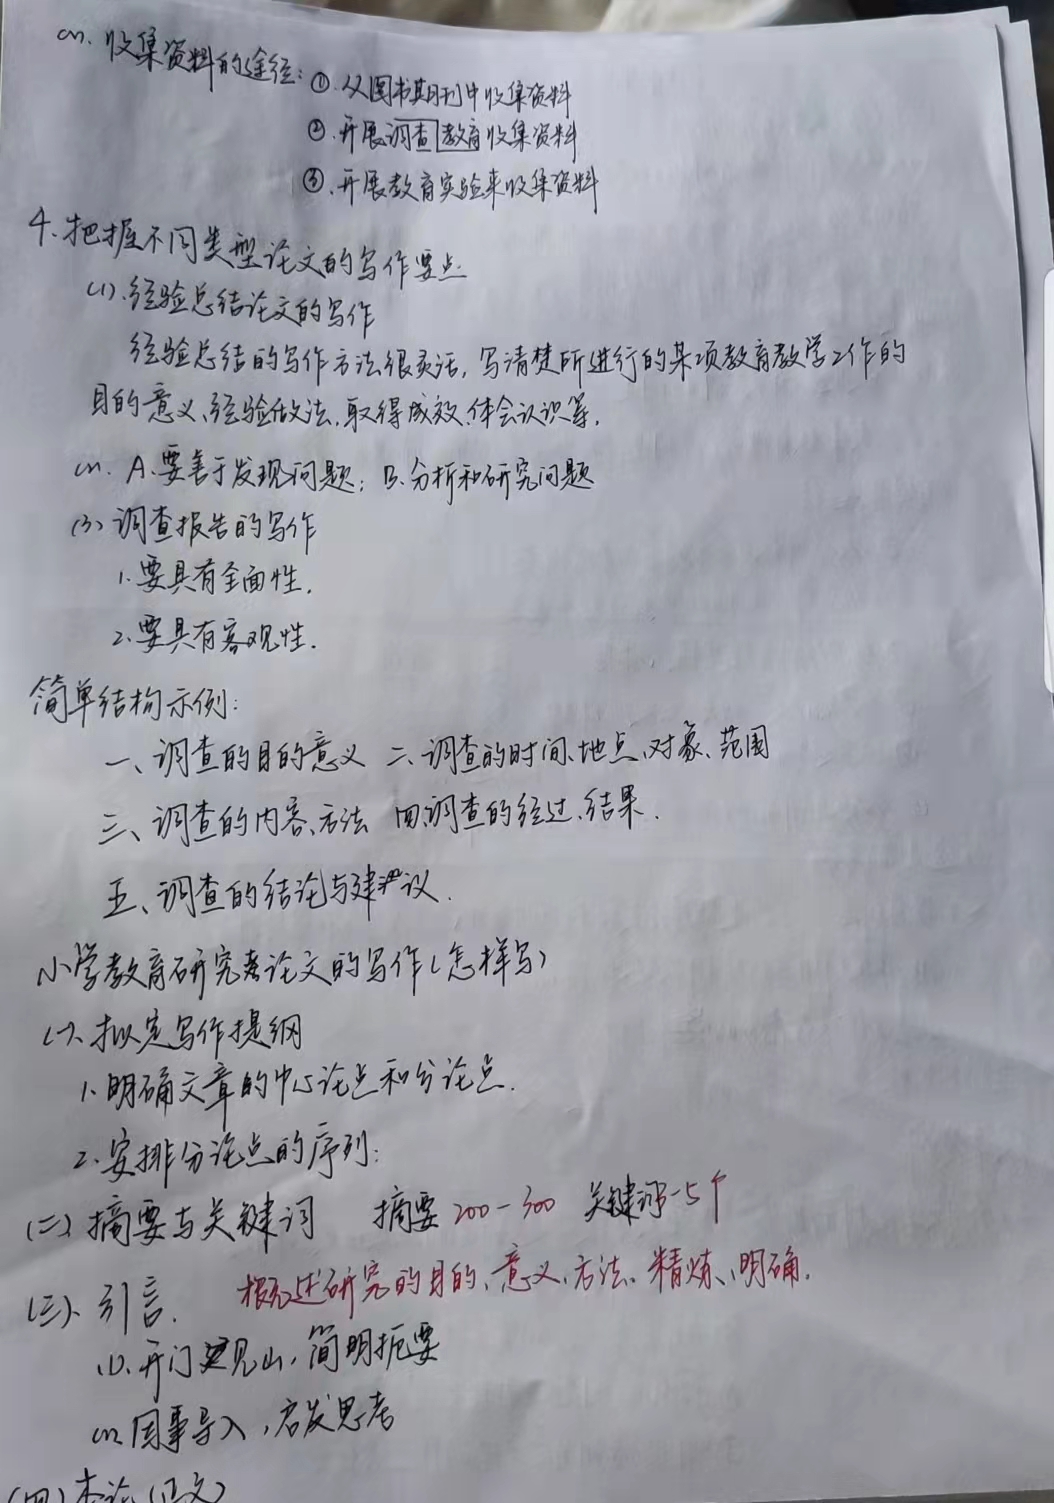 (2). 收集资料的途径: ①.从图书期刊中收集资料
②.开展调查教育收集资料
③.开展教育实验来收集资料
4.把握不同类型论文的写作要点
(1).经验总结论文的写作
经验总结的写作方法很灵活,写清楚所进行的某项教育教学工作的
目的意义、经验做法、取得成效、体会认识等.
(2). A.要善于发现问题; B.分析和研究问题
(3) 调查报告的写作
1.要具有全面性.
2.要具有客观性.
简单结构示例:
一、调查的目的意义 二、调查的时间、地点、对象、范围
三、调查的内容、方法 四、调查的经过、结果.
五、调查的结论与建议.
小学教育研究论文的写作(怎样写)
(一)、拟定写作提纲
1.明确文章的中心论点和分论点.
2.安排分论点的序列:
(二)摘要与关键词 摘要 200-300 关键词 -5个
概述研究的目的、意义、方法、精炼、明确.
(三)、引言.
(1).开门见山,简明扼要
(2).因事导入,启发思考
(四)本论(正文)